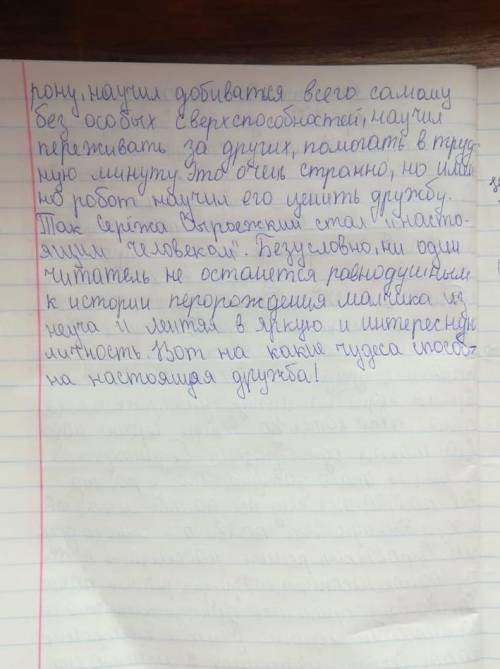 рону, научил добиваться всего самому
без особых сверхспособностей, научил
переживать за других, помогать в труд-
ную минуту. Это очень странно, но имен
но робот научил его ценить дружбу.
Так Серёжа Сыроежкий стал "насто-
ящим человеком". Безусловно, ни один
читатель не останется равнодушным
к истории перорождения мальчика из
неуча и лентяя в яркую и интересную
личность. Вот на какие чудеса способ-
на настоящая дружба!